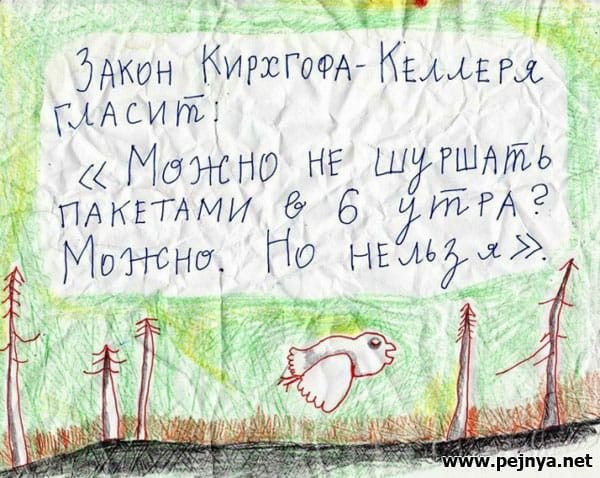 Закон Кирхгофа-Келлеря
гласит:
«Можно не шуршать
пакетами в 6 утра?
Можно. Но нельзя».
www.pejnya.net